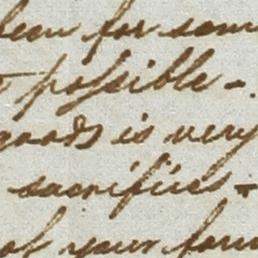 been for som
possible -
goods is very
sacrifices -
of your form